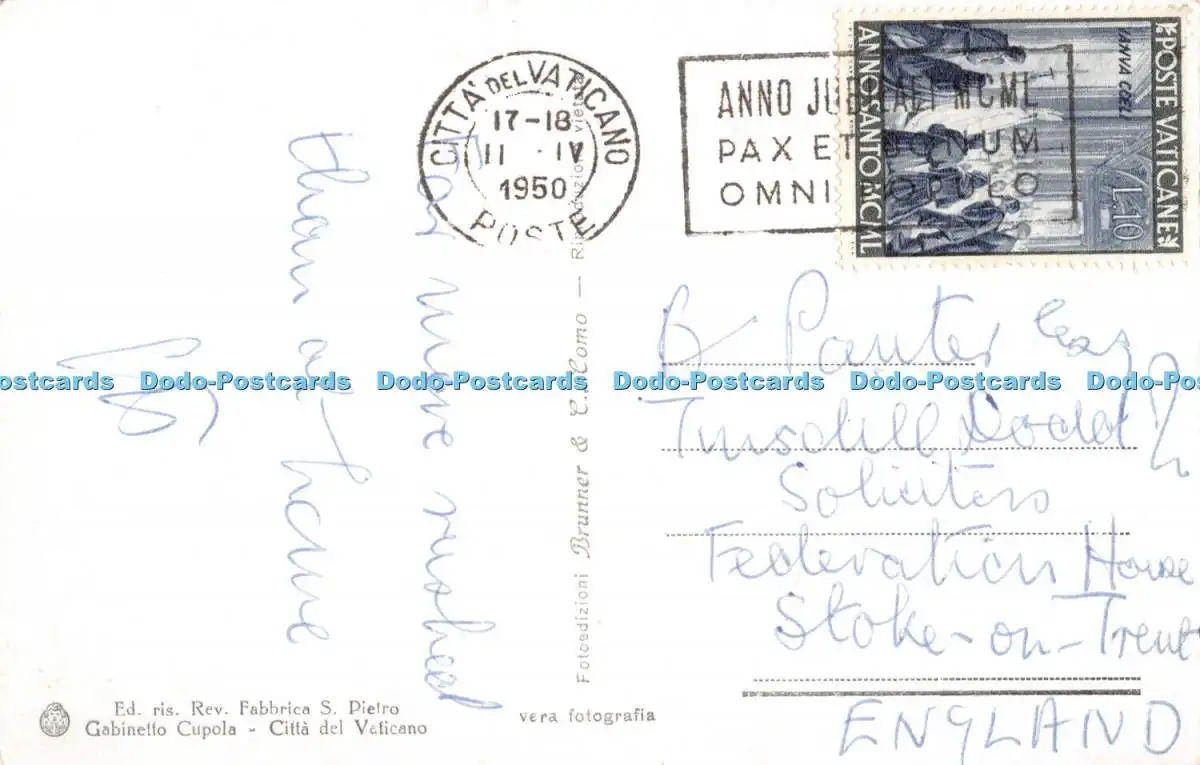 CITTA' DEL VATICANO
17-18
11 IV
1950
POSTE
ANNO JUBILAEI MCML
PAX ET BONUM
OMNI POPULO
POSTE VATICANE
IANVA COELI
L.10
ANNO SANTO MCML
Far more rushed
than at home
B Panter Esq
Solicitors
Federation House
Stoke-on-Trent
ENGLAND
Fotoedizioni Brunner & C. Como — Riproduzione vietata
Dodo-Postcards Dodo-Postcards Dodo-Postcards Dodo-Postcards Dodo-Postcards Dodo-Postcards
Ed. ris. Rev. Fabbrica S. Pietro
Gabinetto Cupola - Città del Vaticano
vera fotografia